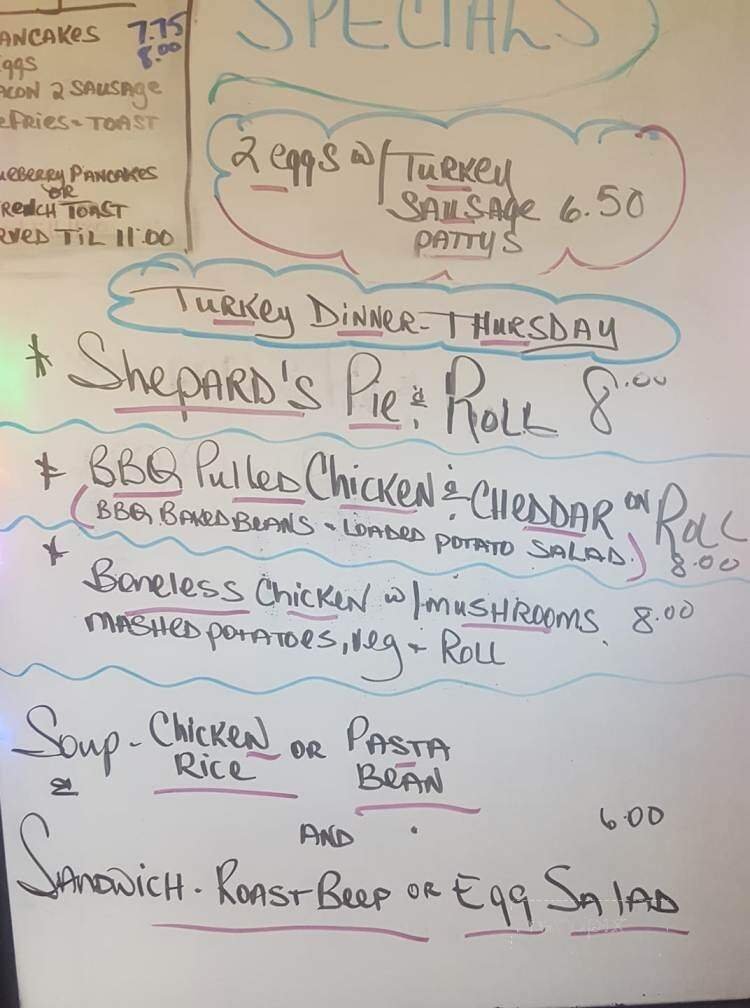 SPECIALS
ANCAKES 7.75
ggs 8.00
ACON 2 SAUSAGE
EFRIES - TOAST
UEBERRY PANCAKES
OR
RENCH TOAST
RVED TIL 11:00
2 eggs w/ TURKEY
SAUSAGE 6.50
PATTYS
TURKEY DINNER - THURSDAY
* SHEPARD'S PIE & ROLL 8.00
* BBQ PULLED CHICKEN & CHEDDAR ON ROLL
(BBQ BAKED BEANS - LOADED POTATO SALAD.) 8.00
* BONELESS CHICKEN w/ MUSHROOMS 8.00
MASHED POTATOES, Veg + ROLL
SOUP - CHICKEN OR PASTA
RICE BEAN
&
AND 6.00
SANDWICH - ROAST BEEF OR EGG SALAD